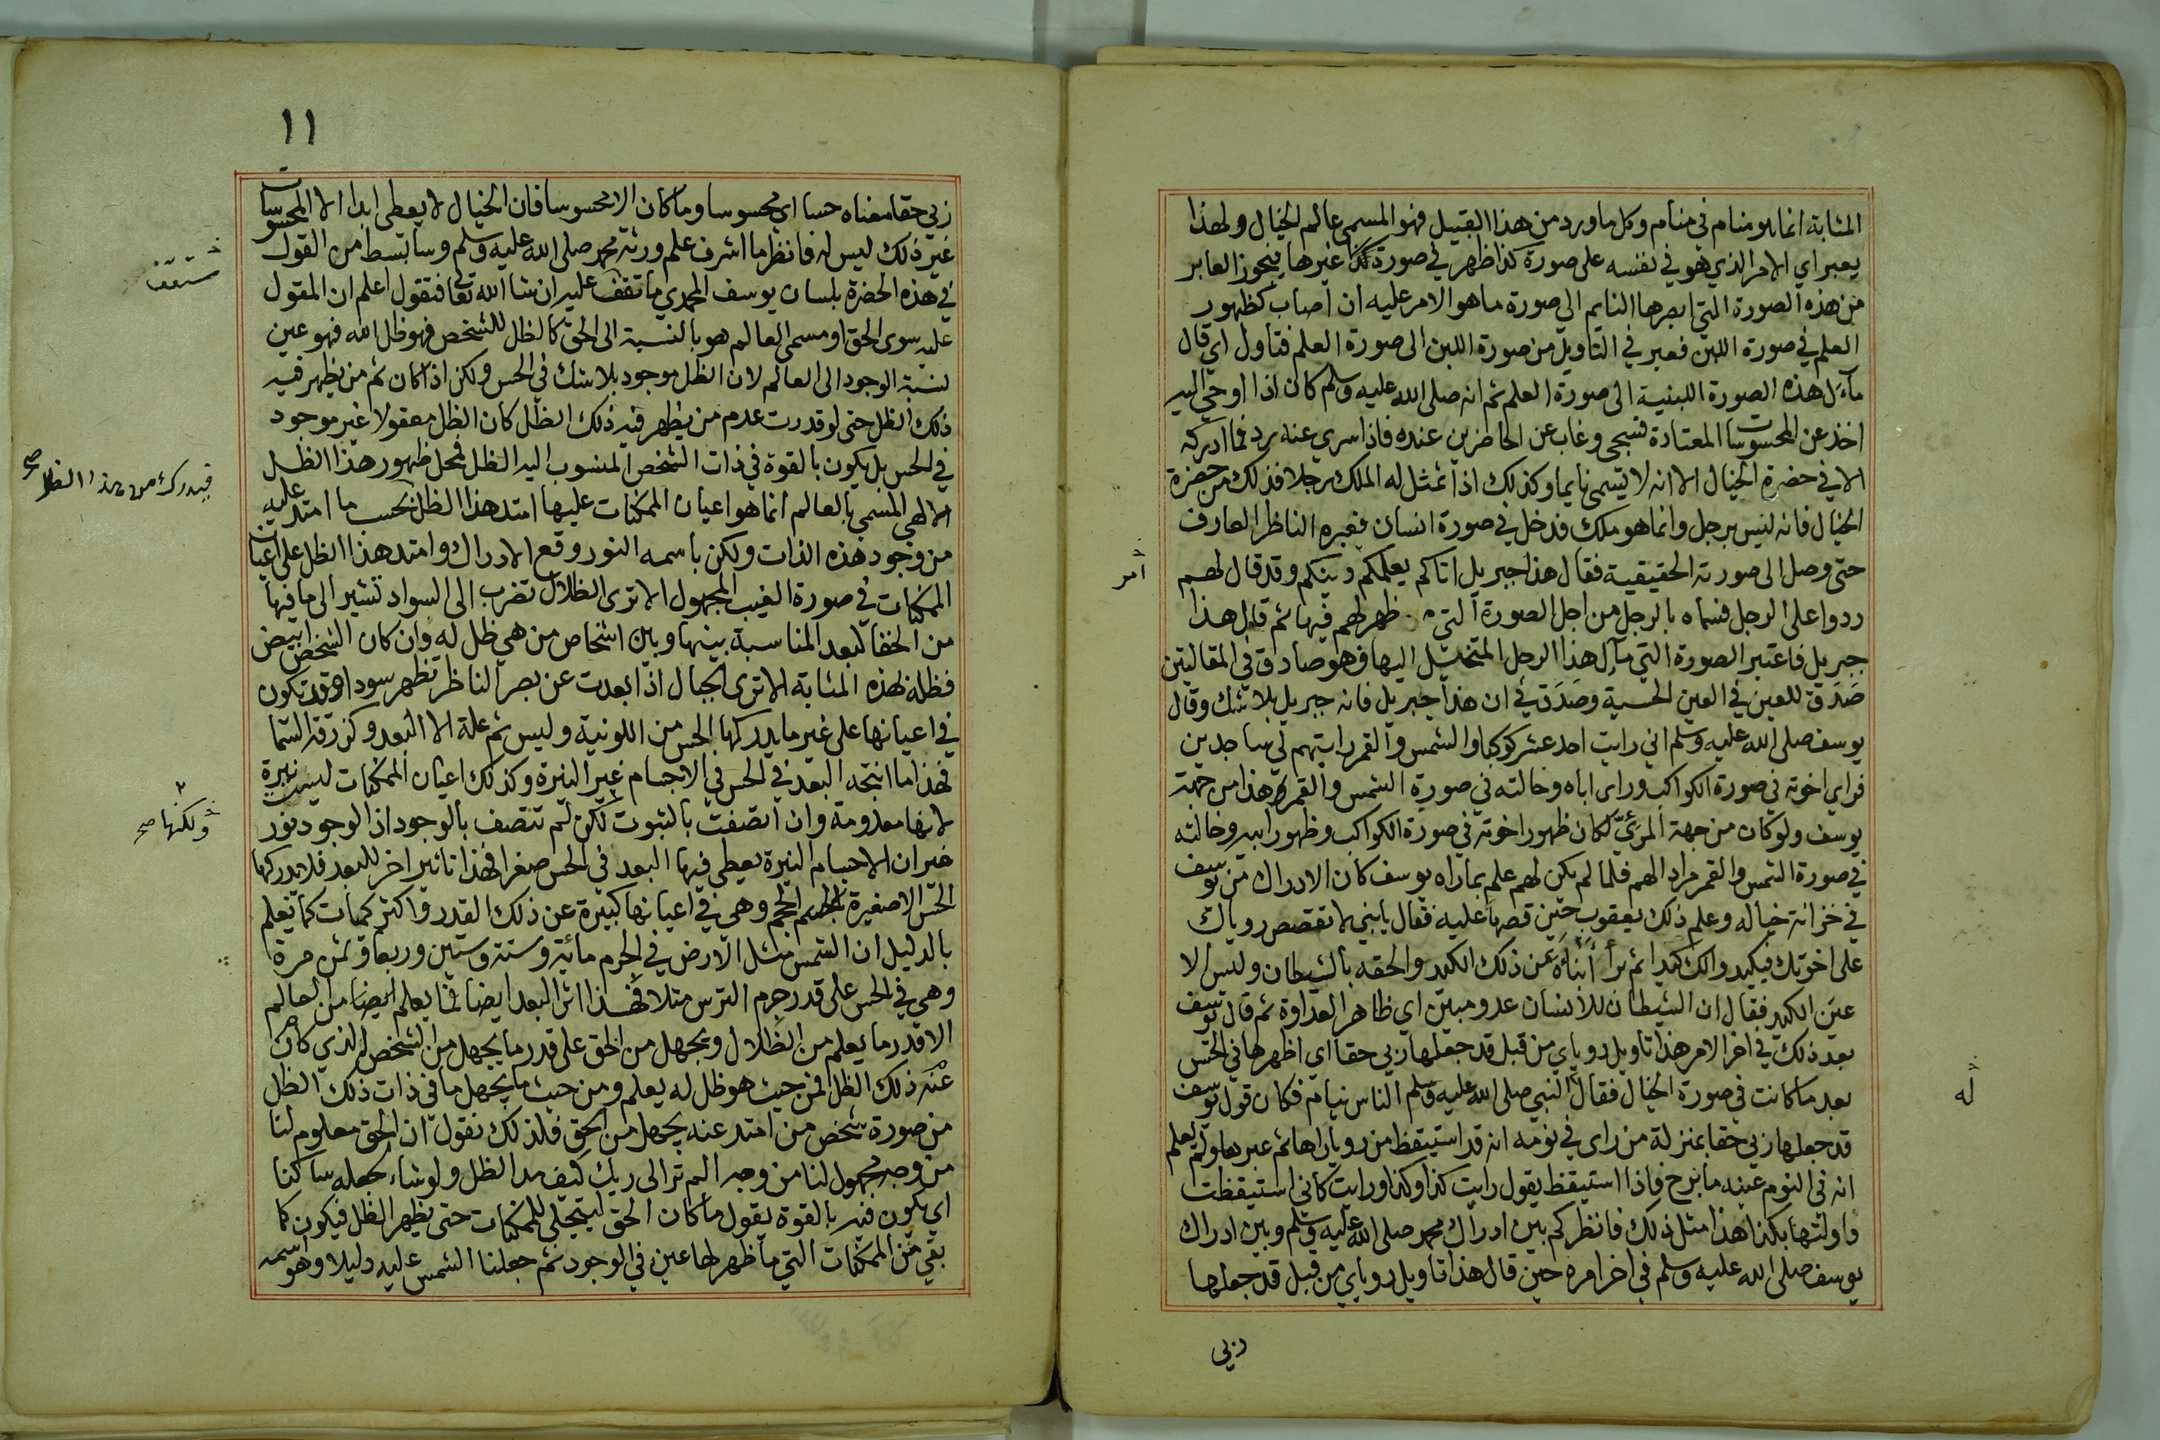 المثابة انما هو منام في منام وكل ما ورد من هذا القبيل فهو المسمى عالم الخيال ولهذا
يعبر اي الامر الذي هو في نفسه على صورة كذا ظهر في صورة غيرها فيجوز العابر
من هذه الصورة التي ابصرها النايم الى صورة ما هو الامر عليه ان اصاب كظهور
العلم في صورة اللبن فعبر في التاويل من صورة اللبن الى صورة العلم فتاول اي قال
مآل هذه الصورة اللبنية الى صورة العلم ثم انه صلى الله عليه وسلم كان اذا اوحي اليه
اخذ عن المحسوسات المعتادة فسجى وغاب عن الحاضرين عنده فاذا سري عنه رد فما ادركه
الا في حضرة الخيال الا انه لا يسمى نايما وكذلك اذا تمثل له الملك رجلا فذلك من حضرة
الخيال فانه ليس برجل وانما هو ملك فدخل في صورة انسان فعبره الناظر العارف
حتى وصل الى صورته الحقيقية فقال هذا جبريل اتاكم يعلمكم دينكم وقد قال لهم
ردوا على الرجل فسماه بالرجل من اجل الصورة التي ظهر لهم فيها ثم قال هذا
جبريل فاعتبر الصورة التي مآل هذا الرجل المتخيل اليها فهو صادق في المقالتين
صدق للعين في العين الحسية وصدق في ان هذا جبريل فانه جبريل بلا شك وقال
يوسف صلى الله عليه وسلم اني رايت احد عشر كوكبا والشمس والقمر رايتهم لي ساجدين
فراى اخوته في صورة الكواكب وراى اباه وخالته في صورة الشمس والقمر هذا من جهة
يوسف ولو كان من جهة المرئي لكان ظهور اخوته في صورة الكواكب وظهور ابيه وخالته
في صورة الشمس والقمر مرادا لهم فلما لم يكن لهم علم بما راه يوسف كان الادراك من يوسف
في خزانة خياله وعلم ذلك يعقوب حين قصها عليه فقال يابني لا تقصص روياك
على اخوتك فيكيدوا لك كيدا ثم برأ أبناءه عن ذلك الكيد والحقه بالشيطان وليس الا
عين الكيد فقال ان الشيطان للانسان عدو مبين اي ظاهر العداوة ثم قال يوسف
بعد ذلك في اخر الامر هذا تاويل روياي من قبل قد جعلها ربي حقا اي اظهرها في الحس
بعد ما كانت في صورة الخيال فقال النبي صلى الله عليه وسلم الناس نيام فكان قول يوسف
قد جعلها ربي حقا بمنزلة من راى في نومه انه قد استيقظ من رويا راها ثم عبرها ولم يعلم
انه في النوم عينه ما برح فاذا استيقظ يقول رايت كذا وكذا ورايت كاني استيقظت
واولتها بكذا هذا مثل ذلك فانظر كم بين ادراك محمد صلى الله عليه وسلم وبين ادراك
يوسف صلى الله عليه وسلم في اخر امره حين قال هذا تاويل روياي من قبل قد جعلها
ربي
له
١١
ربي حقا معناه حسا اي محسوسا وما كان الا محسوسا فان الخيال لا يعطي ابدا الا المحسوسات
غير ذلك ليس له فانظر ما اشرف علم ورثة محمد صلى الله عليه وسلم وسابسط من القول
في هذه الحضرة بلسان يوسف المحمدي ما تقف عليه ان شا الله تعالى فنقول اعلم ان المقول
عليه سوى الحق او مسمى العالم هو بالنسبة الى الحق كالظل للشخص فهو ظل الله فهو عين
نسبة الوجود الى العالم لان الظل موجود بلا شك في الحس ولكن اذا كان ثم من يظهر فيه
ذلك الظل حتى لو قدرت عدم من يظهر فيه ذلك الظل كان الظل معقولا غير موجود
في الحس بل يكون بالقوة في ذات الشخص المنسوب اليه الظل فمحل ظهور هذا الظل
الالهي المسمى بالعالم انما هو اعيان الممكنات عليها امتد هذا الظل بحسب ما امتد عليه
من وجود هذه الذات ولكن باسمه النور وقع الادراك وامتد هذا الظل على اعيان
الممكنات في صورة الغيب المجهول الا ترى الظلال تضرب الى السواد تشير الى ما فيها
من الخفا لبعد المناسبة بينها وبين اشخاص من هي ظل له وان كان الشخص ابيض
فظله بهذه المثابة الا ترى الجبال اذا بعدت عن بصر الناظر تظهر سودا وقد تكون
في اعيانها على غير ما يدركها الحس من اللونية وليس ثم علة الا البعد وكزرقة السما
فهذا ما انتجه البعد في الحس في الاجسام غير النيرة وكذلك اعيان الممكنات ليست نيرة
لانها معدومة وان اتصفت بالثبوت لكن لم تتصف بالوجود اذ الوجود نور
غير ان الاجسام النيرة يعطي فيها البعد في الحس صغرا فهذا تاثير اخر للبعد فلا يدركها
الحس الا صغيرة الحجم وهي في اعيانها كبيرة عن ذلك القدر واكثر كميات كما تعلم
بالدليل ان الشمس مثل الارض في الجرم مائة وستة وستين وربعا وثمن مرة
وهي في الحس على قدر جرم الترس مثلا فهذا اثر البعد ايضا فما يعلم ايضا من العالم
الا قدر ما يعلم من الظلال ويجهل من الحق على قدر ما يجهل من الشخص الذي كان
عنه ذلك الظل فمن حيث هو ظل له يعلم ومن حيث ما يجهل ما في ذات ذلك الظل
من صورة شخص من امتد عنه يجهل من الحق فلذلك نقول ان الحق معلوم لنا
من وجه مجهول لنا من وجه الم تر الى ربك كيف مد الظل ولو شاء لجعله ساكنا
اي يكون فيه بالقوة يقول ما كان الحق ليتجلى للممكنات حتى يظهر الظل فيكون كما
بقي من الممكنات التي ما ظهر لها عين في الوجود ثم جعلنا الشمس عليه دليلا وهو اسمه
فيدرك من هذا الظل صح
ولكنها صح